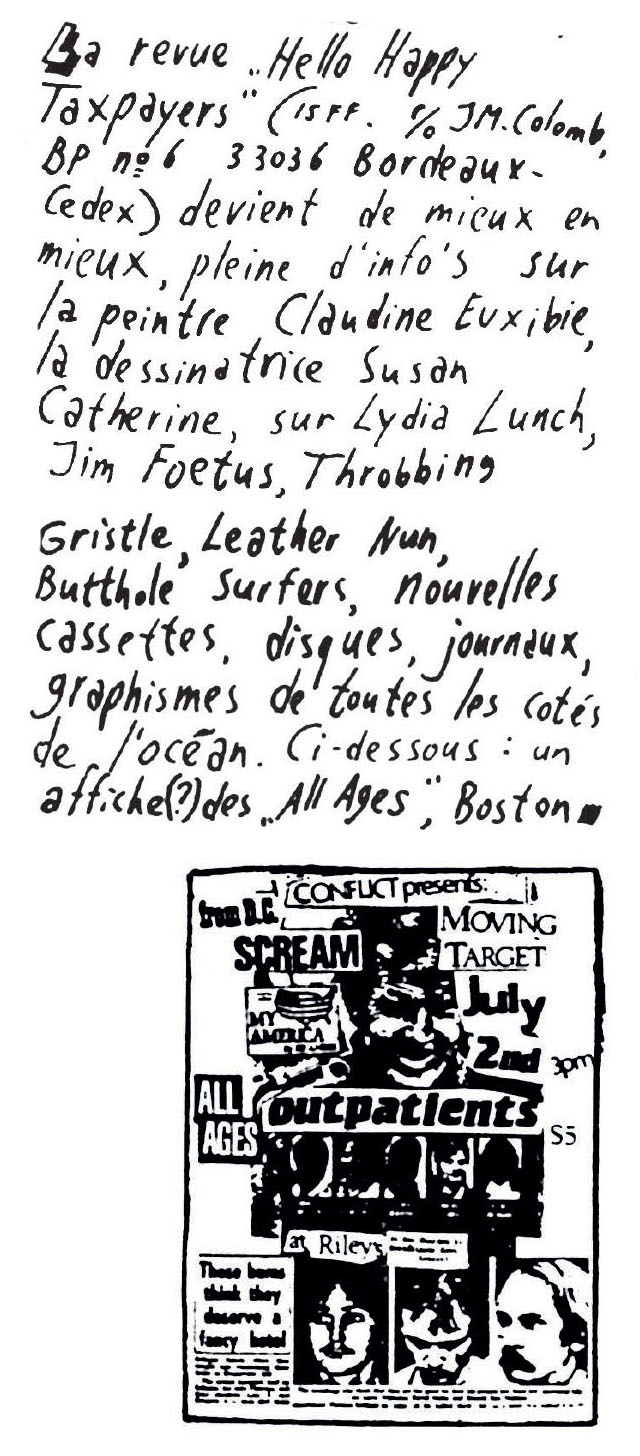 La revue „Hello Happy
Taxpayers" (15FF. c/o J.M. Colomb,
BP nº 6 33036 Bordeaux-
Cedex) devient de mieux en
mieux, pleine d'info's sur
la peintre Claudine Euxibie,
la dessinatrice Susan
Catherine, sur Lydia Lunch,
Jim Foetus, Throbbing
Gristle, Leather Nun,
Butthole Surfers, nouvelles
cassettes, disques, journaux,
graphismes de toutes les cotés
de l'océan. Ci-dessous : un
affiche(?) des „All Ages", Boston
CONFLICT presents:
from D.C.
SCREAM
MOVING
TARGET
MY
AMERICA
July
2nd 3pm
ALL
AGES
outpatients
$5
at Riley's
These bums
think they
deserve a
fancy hotel